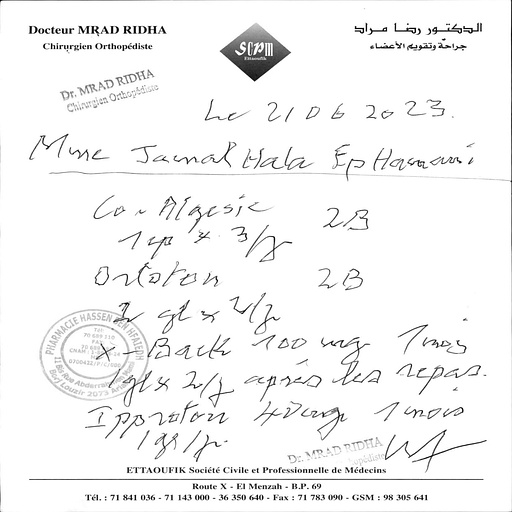 Docteur MRAD RIDHA
Chirurgien Orthopédiste
الدكتور رضا مراد
جراحة وتقويم الأعضاء
SCPM
Ettaoufik
Dr. MRAD RIDHA
Chirurgien Orthopédiste
Le 21 06 2023.
Mme Jammal Hala Ep Hammami
Co-Algesic 2B
1cp x 3/j
Ortoton 2B
2 gl x 2/j
PHARMACIE HASSEN BEN
X-Back 100 mg 1 mois
1gl x 2/j après les repas.
Ipproton 40mg 1 mois
1gl/j.
Dr. MRAD RIDHA
ETTAOUFIK Société Civile et Professionnelle de Médecins
Route X - El Menzah - B.P. 69
Tél. : 71 841 036 - 71 143 000 - 36 350 640 - Fax : 71 783 090 - GSM : 98 305 641